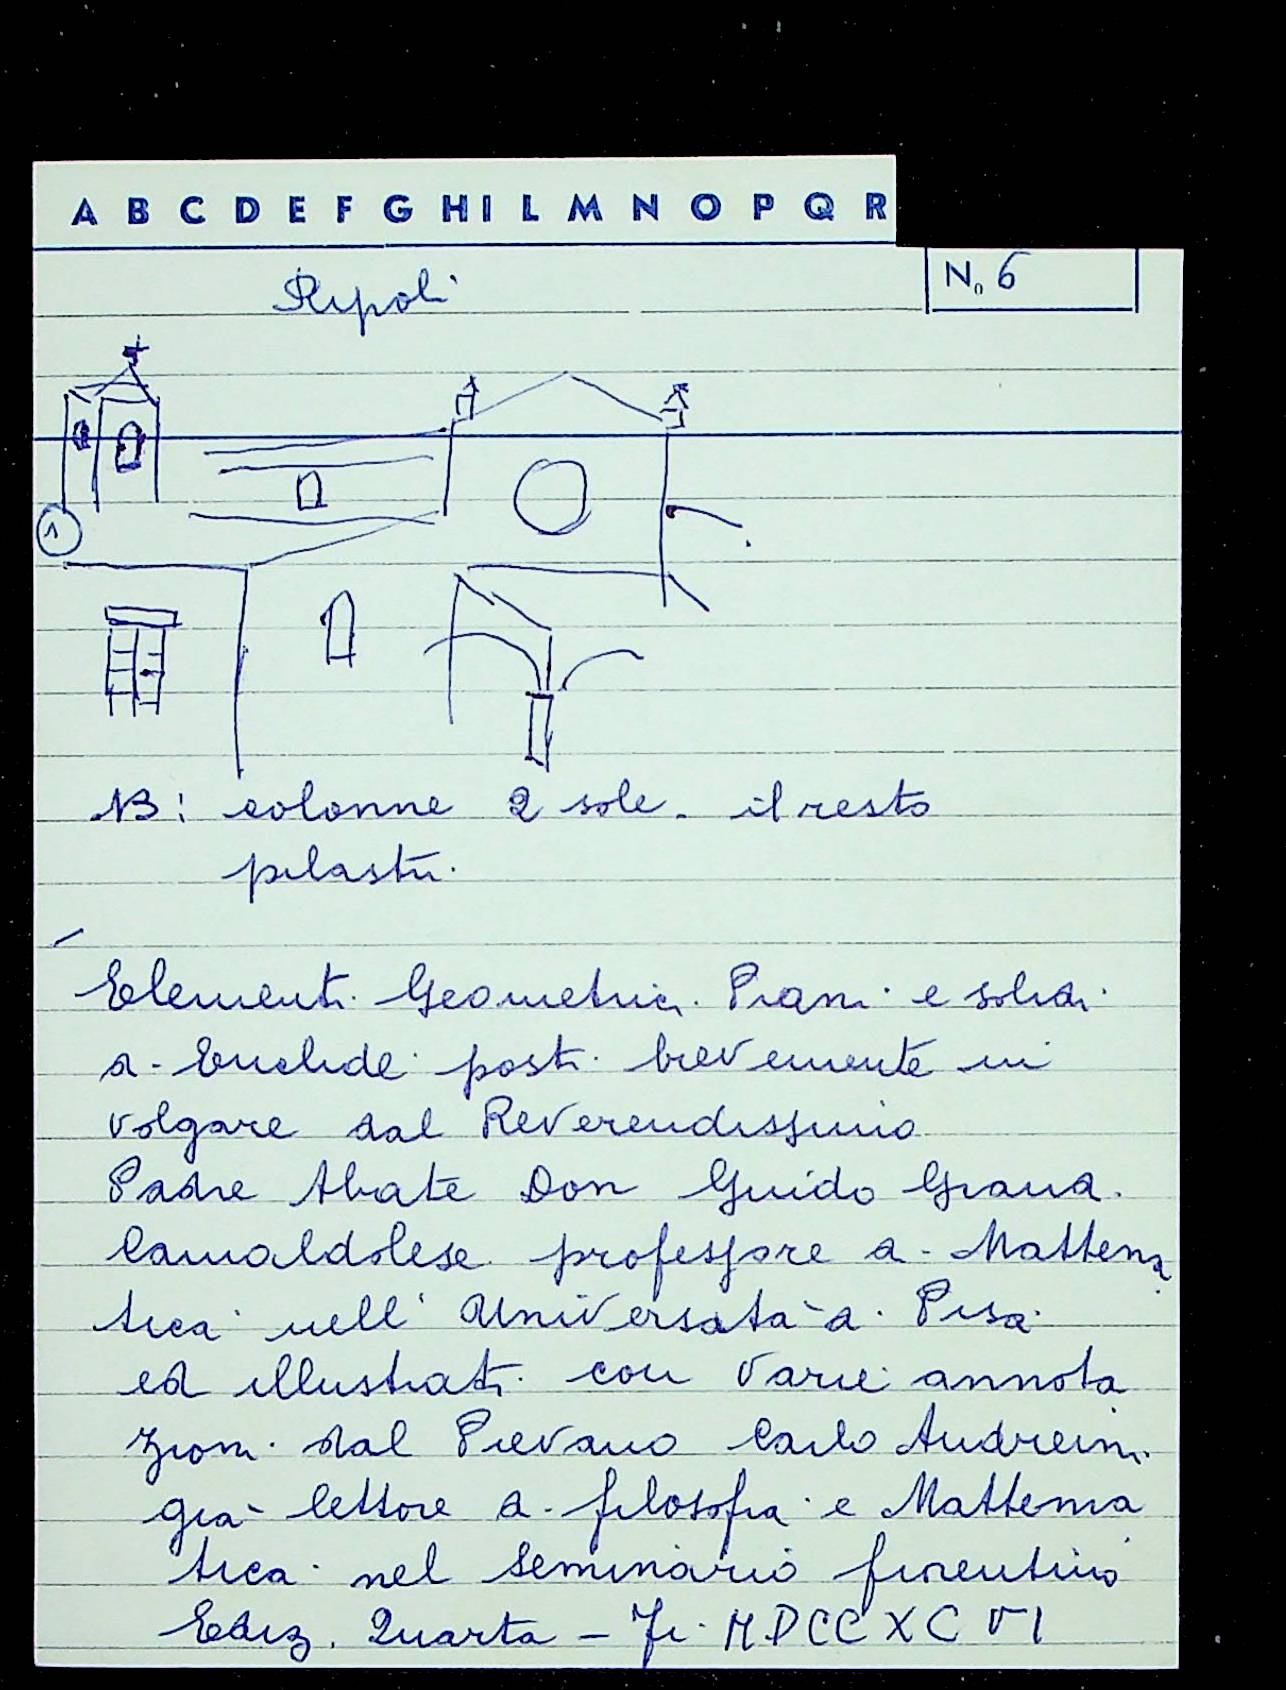 A B C D E F G H I L M N O P Q R
N. 6
Ripoli
1
NB: colonne 2 sole. il resto
pilastri.
Elementi Geometrici Piani e solidi
di Euclide posti brevemente in
volgare dal Reverendissimo
Padre Abate Don Guido Grandi
Camaldolese professore di Mattema
tica nell' Università di Pisa
ed illustrati con varie annota
zioni dal Pievano Carlo Andreini
già lettore di filosofia e Mattema
tica nel Seminario fiorentino
Ediz. Quarta - Fi. MDCCXCVI